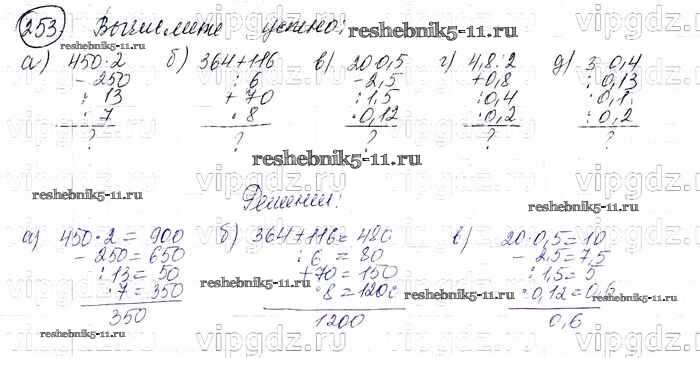 253. Вычислите устно:
reshebnik5-11.ru
а) 450·2 б) 364+116 в) 20·0,5 г) 4,8:2 д) 3·0,4
- 250 : 6 - 2,5 + 0,8 : 0,13
: 13 + 70 : 1,5 : 0,4 · 0,1
· 7 · 8 · 0,12 · 0,2 : 0,2
? ? ? ? ?
reshebnik5-11.ru
vipgdz.ru vipgdz.ru vipgdz.ru
reshebnik5-11.ru
reshebnik5-11.ru
Решение:
а) 450·2 = 900 б) 364+116 = 480 в) 20·0,5 = 10
- 250 = 650 : 6 = 80 - 2,5 = 7,5
: 13 = 50 + 70 = 150 : 1,5 = 5
· 7 = 350 · 8 = 1200 · 0,12 = 0,6
350 1200 0,6
reshebnik5-11.ru
reshebnik5-11.ru
reshebnik5-11.ru
reshebnik5-11.ru
vipgdz.ru vipgdz.ru vipgdz.ru